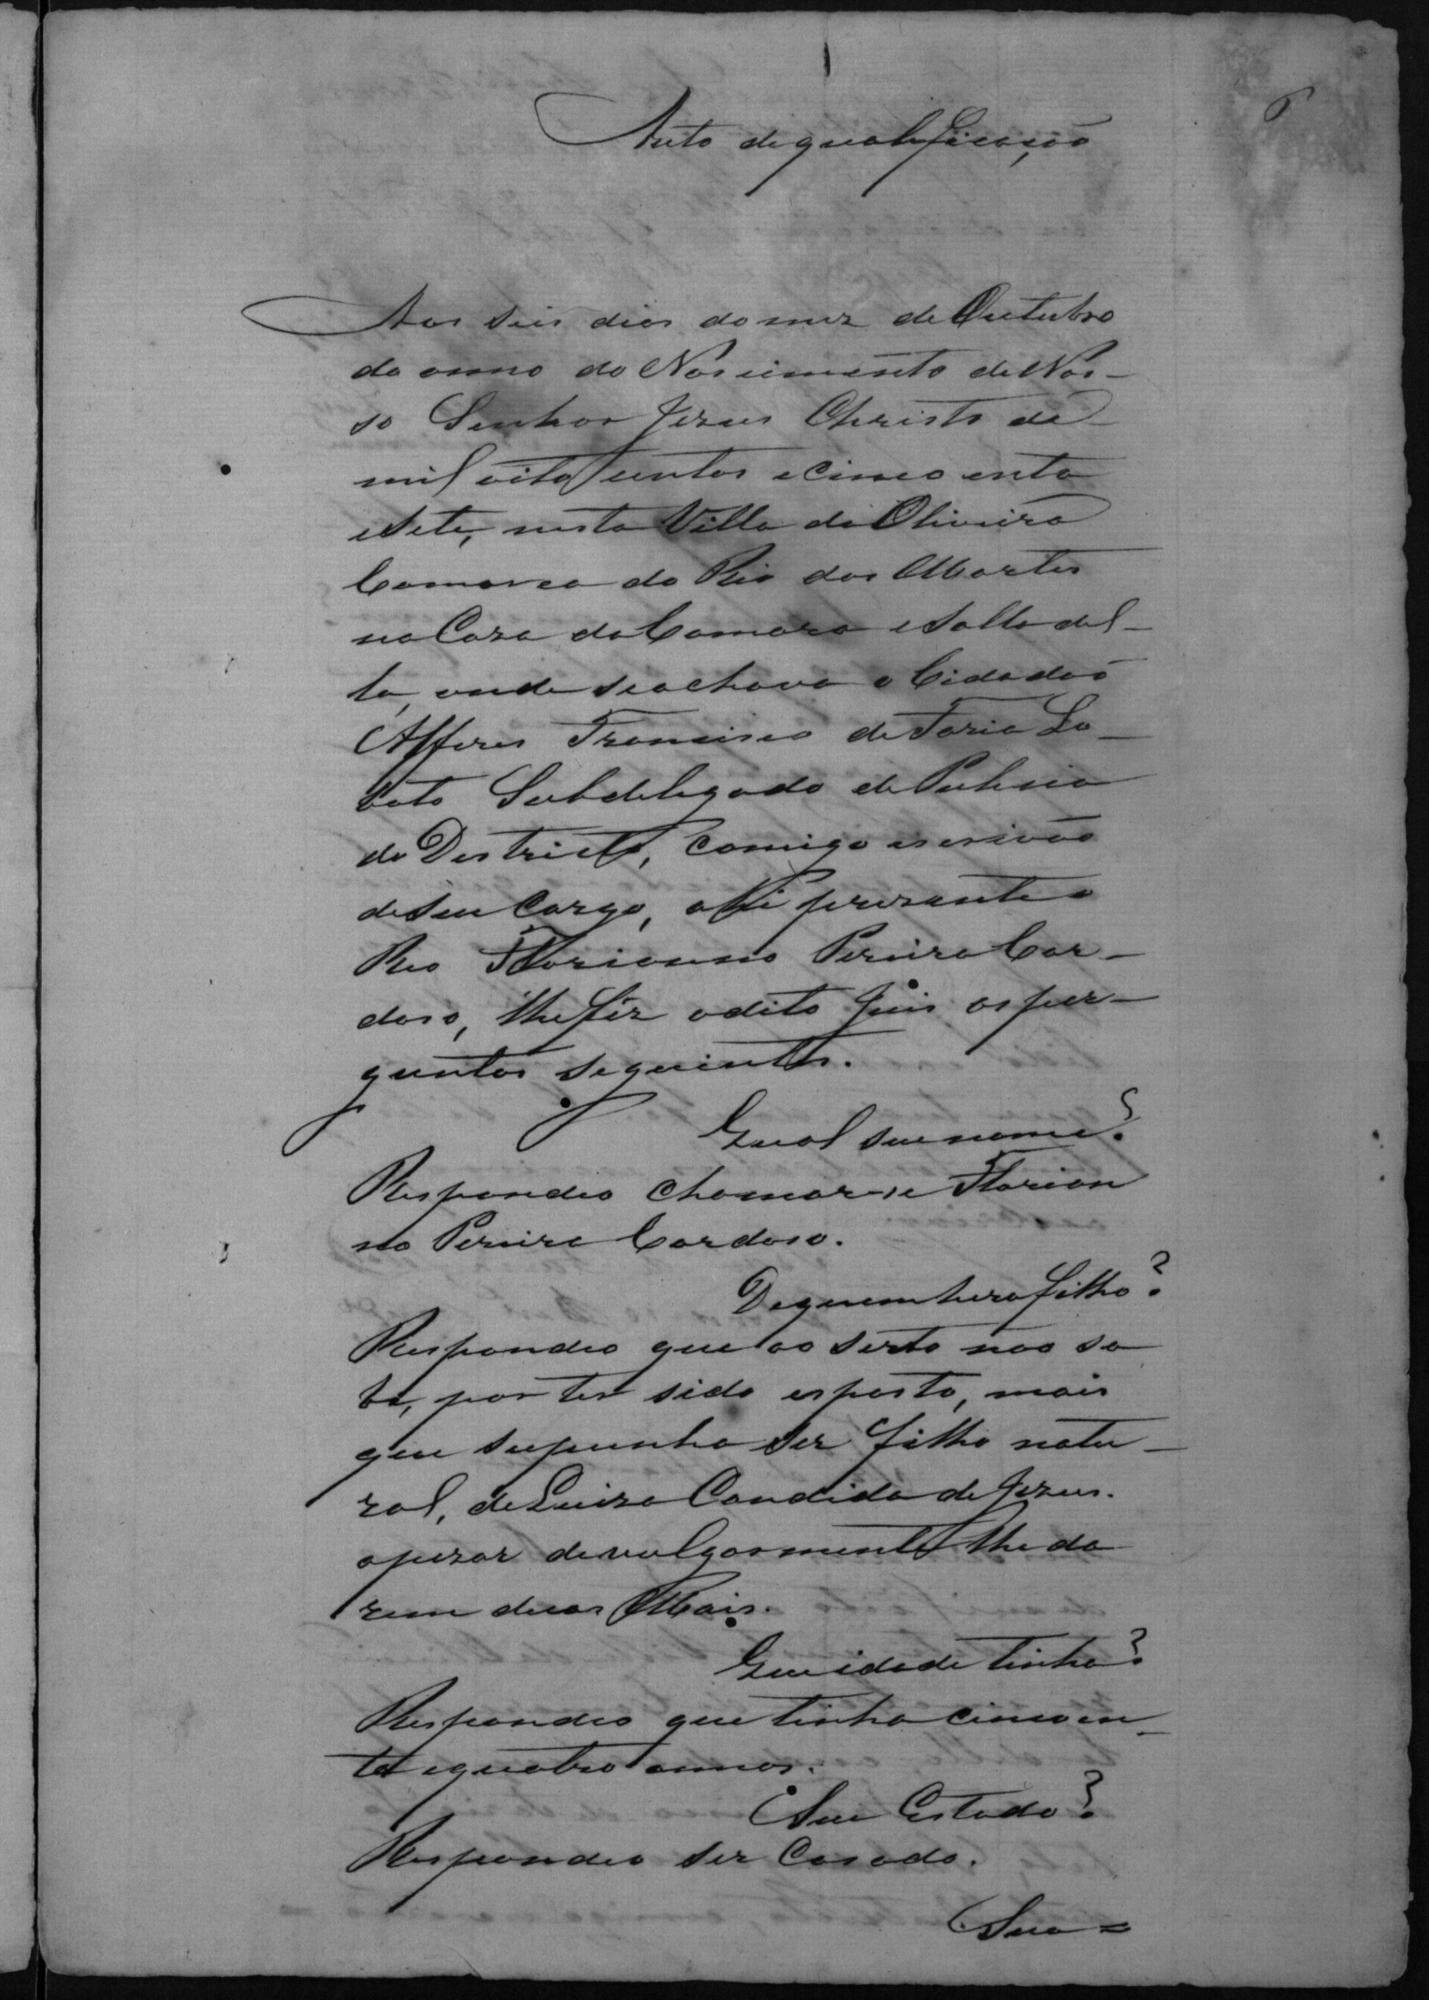 6
Auto de qualificação
Aos seis dias do mez de Outubro
do anno do Nascimento de Nos-
so Senhor Jezus Christo de
mil oito centos e cinco enta
e sete, nesta Villa de Oliveira
Comarca do Rio das Mortes
na Caza da Camara e Salla del-
la, onde se achava o Cidadão
Alferes Francisco de Faria Lo-
bato Subdelegado de Policia
do Destricto, comigo escrivão
de seu Cargo, ahi prezente o
Reo Florianno Pereira Car-
dozo, lhe fez o dito Juis as per-
guntas seguintes.
Qual seu nome?
Respondeo chamar-se Florian
no Pereira Cardoso.
De quem hera filho?
Respondeo que ao serto não sa
be, por ter sido esposto, mais
que supunha ser filho natu-
ral, de Luiza Candida de Jezus.
apezar de vulgarmente lhe da
rem duas Mais.
Que idade tinha?
Respondeo que tinha cincoen-
ta e quatro annos.
Seu Estado?
Respondeo ser Casado.
Sua=